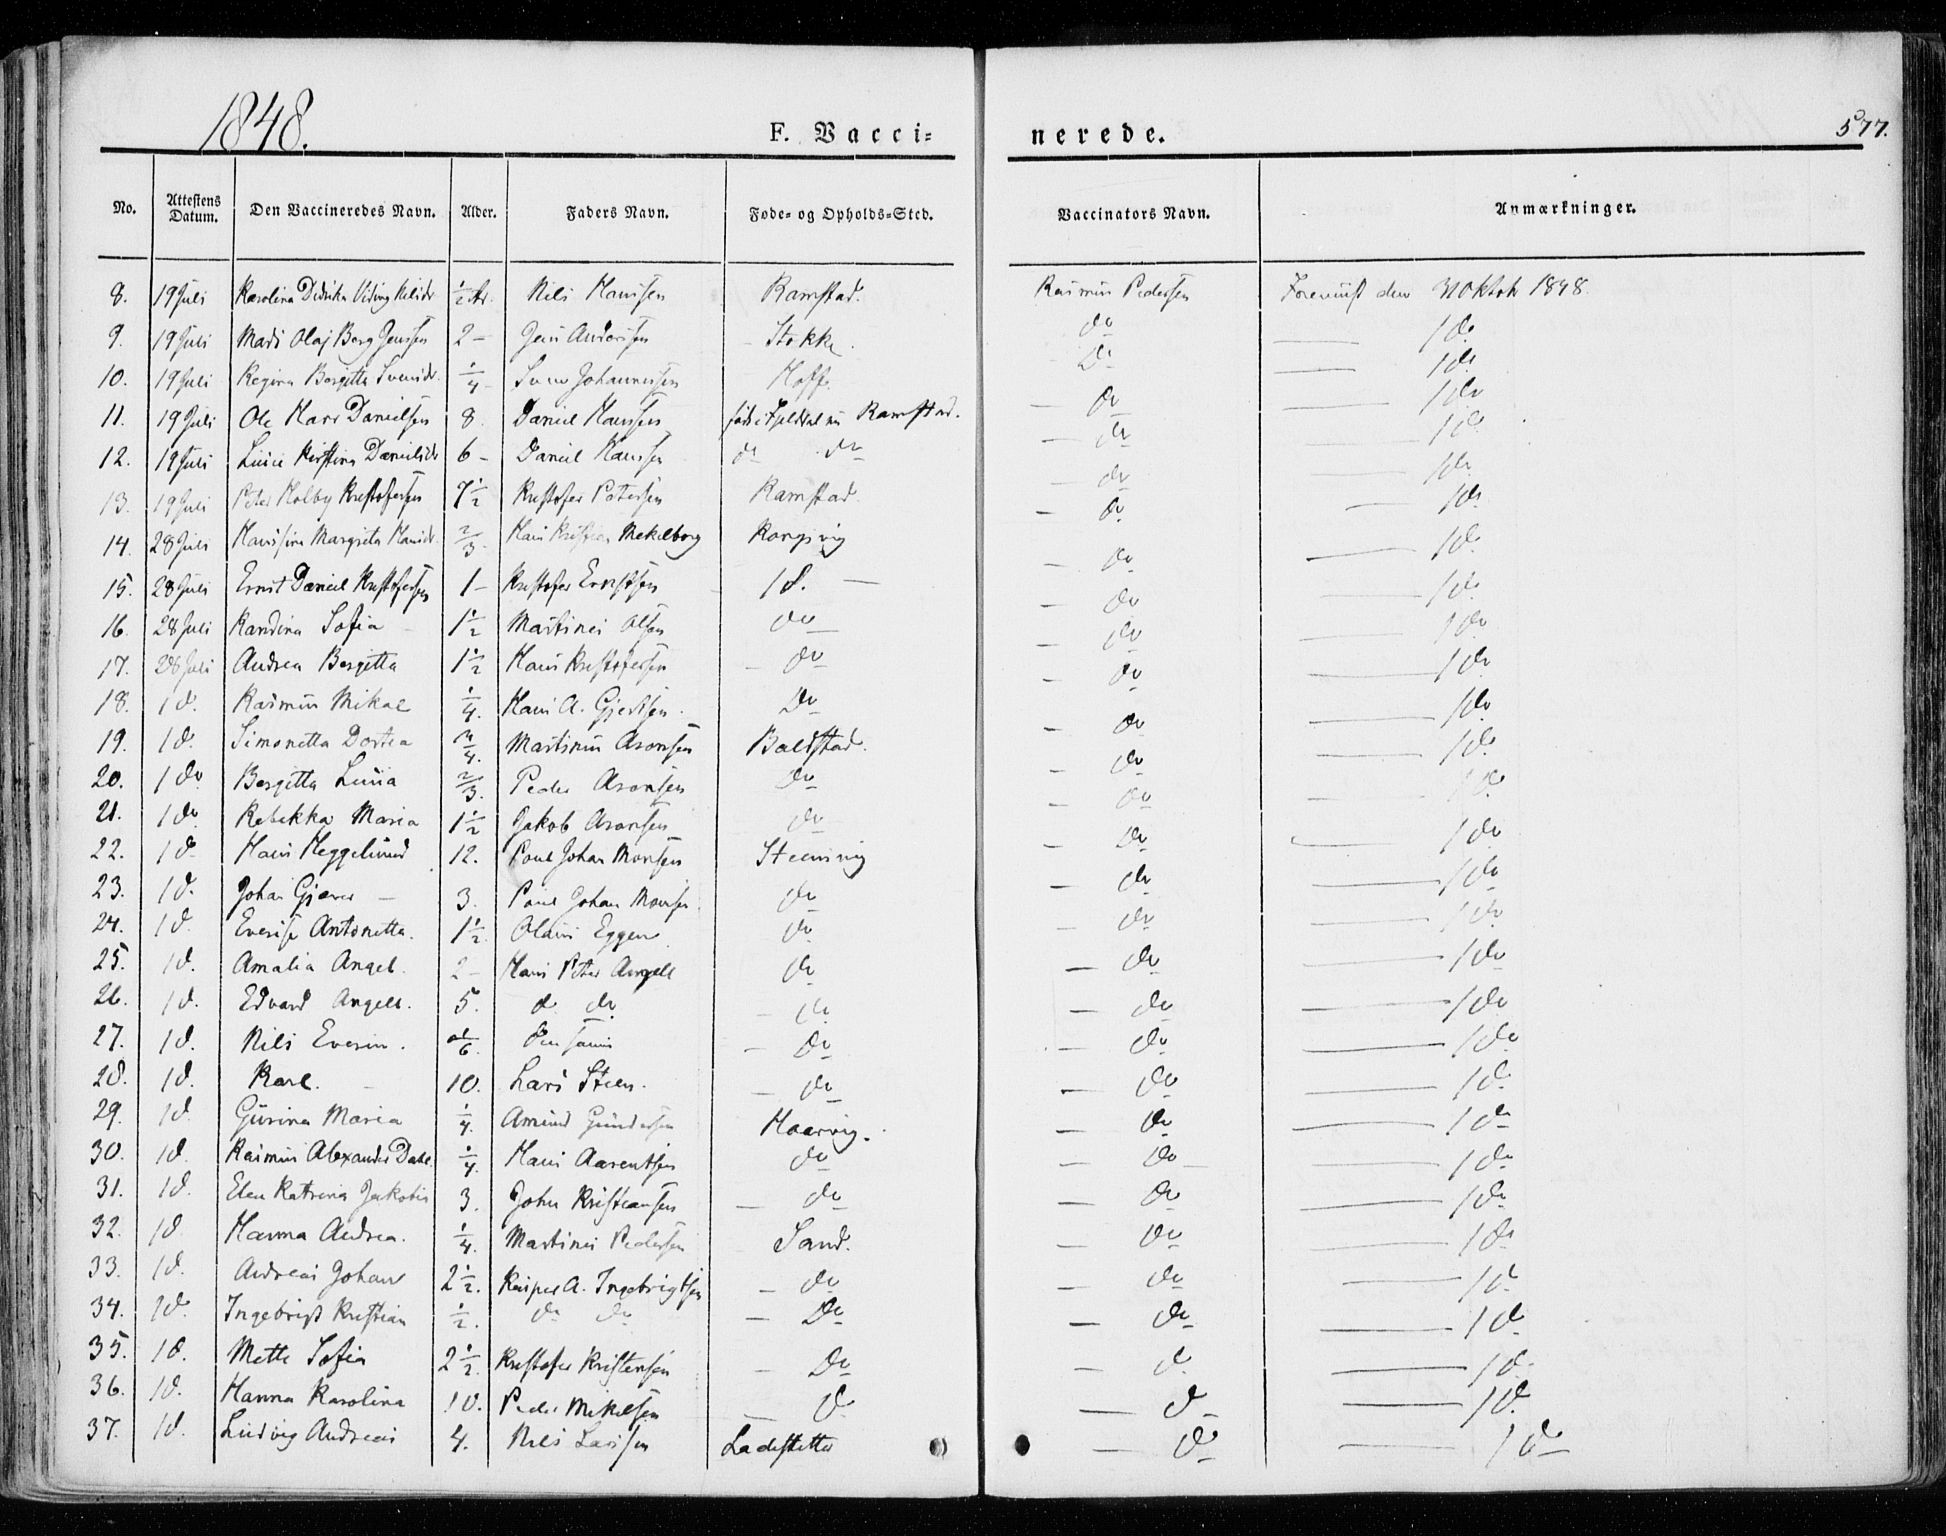 1848.
F. Vacci=
nerede.
577.
No. Attestens Datum. Den Vaccineredes Navn. Alder. Faders Navn. Føde- og Opholds-Sted. Vaccinators Navn. Anmærkninger.
8. 19 Juli Karolina Didrika Nilsdr. ½ Ar. Nils Hanssen Ramstad. Rasmus Pedersen Forevist den Oktob 1848.
9. 19 Juli Mads Olaj Berg Jenssen 2 - Jens Anderssen Stokke. do 1 do
10. 19 Juli Regina Bergitta Svensdr. ¼ - Sven Johannessen Hoff. Do 1 do
11. 19 Juli Ole Danielsen 8. Daniel Hanssen Ramstad. do 1 do
12. 19 Juli Kirstina Danielsdr 6 - Daniel Hanssen do do do 1 d.
13. 19 Juli Peter Holby Kristofersen 7½ Kristofer Petersen Ramstad do 1 do
14. 28 Juli Hansina Margreta Hansdr. 2/3. Hans Kristian Mekelborg Kongsvig do 1 do
15. 28 Juli Ernst Daniel Kristofersen 1 - Kristofer Ernstsen 1 d. do 1 d.
16. 28 Juli Randina Sofia 1½ Martines Olsen do do 1 d.
17. 28 Juli Andrea Bergitta 1½ Hans Kristofersen do do 1 do
18. 1 d. Rasmus Mikal ¼. Hans A. Gjertsen. Do do 1 do
19. 1 d. Simonetta Dortea ¾. Martinus Aronsen Baldstad. do 1 do
20. 1 do Bergitta 2/3. Peder Aronsen do do 1 d.
21. 1 do Rebekka Maria 1½ Jakob Aronsen do do 1 d.
22. 1 d. Hans Heggelund 12. Poul Johan Monsen Steensvig Do 1 do
23. 1 d. Johan Gjæver 3. Poul Johan Monsen do do 1 do
24. 1 d. Antonetta. 1½. Olaus Eggen do do 1 do
25. 1 d. Amalia Angel. 2 - Hans Peter Angell do do 1 do
26. 1 d. Edvard Angell. 5. d. do do do 1 do
27. 1 d. Nils Everin. do do 1 do
28. 1 d. Karl. 10. Lars Steen. do do 1 d.
29. 1 d. Gurina Maria ¼. Amund Gundersen Haarvig. do 1 do
30. 1 d. Rasmus Alexander Dahl ¼. Hans Aarentsen do do 1 do
31. 1 d. Elen Katrina 3. John Kristiansen do do 1 do
32. 1 d. Hanna Andrea. ¼. Martines Pedersen Sand. do 1 do
33. 1 d. Andreas Johan 2½. Kasper A. Ingebrigtsen do do 1 d.
34. 1 d. Ingebrigt Kristian ½. do do Do do 1 d.
35. 1 d. Mette Sofia 2½. Kristofer Kristensen Do d. 1 d.
36. 1 d. Hanna Karolina 10. Peder Mikelsen d. d. 1 d.
37. 1 d. Ludvig Andreas 4. Nils Larssen Ladestetta do 1 do